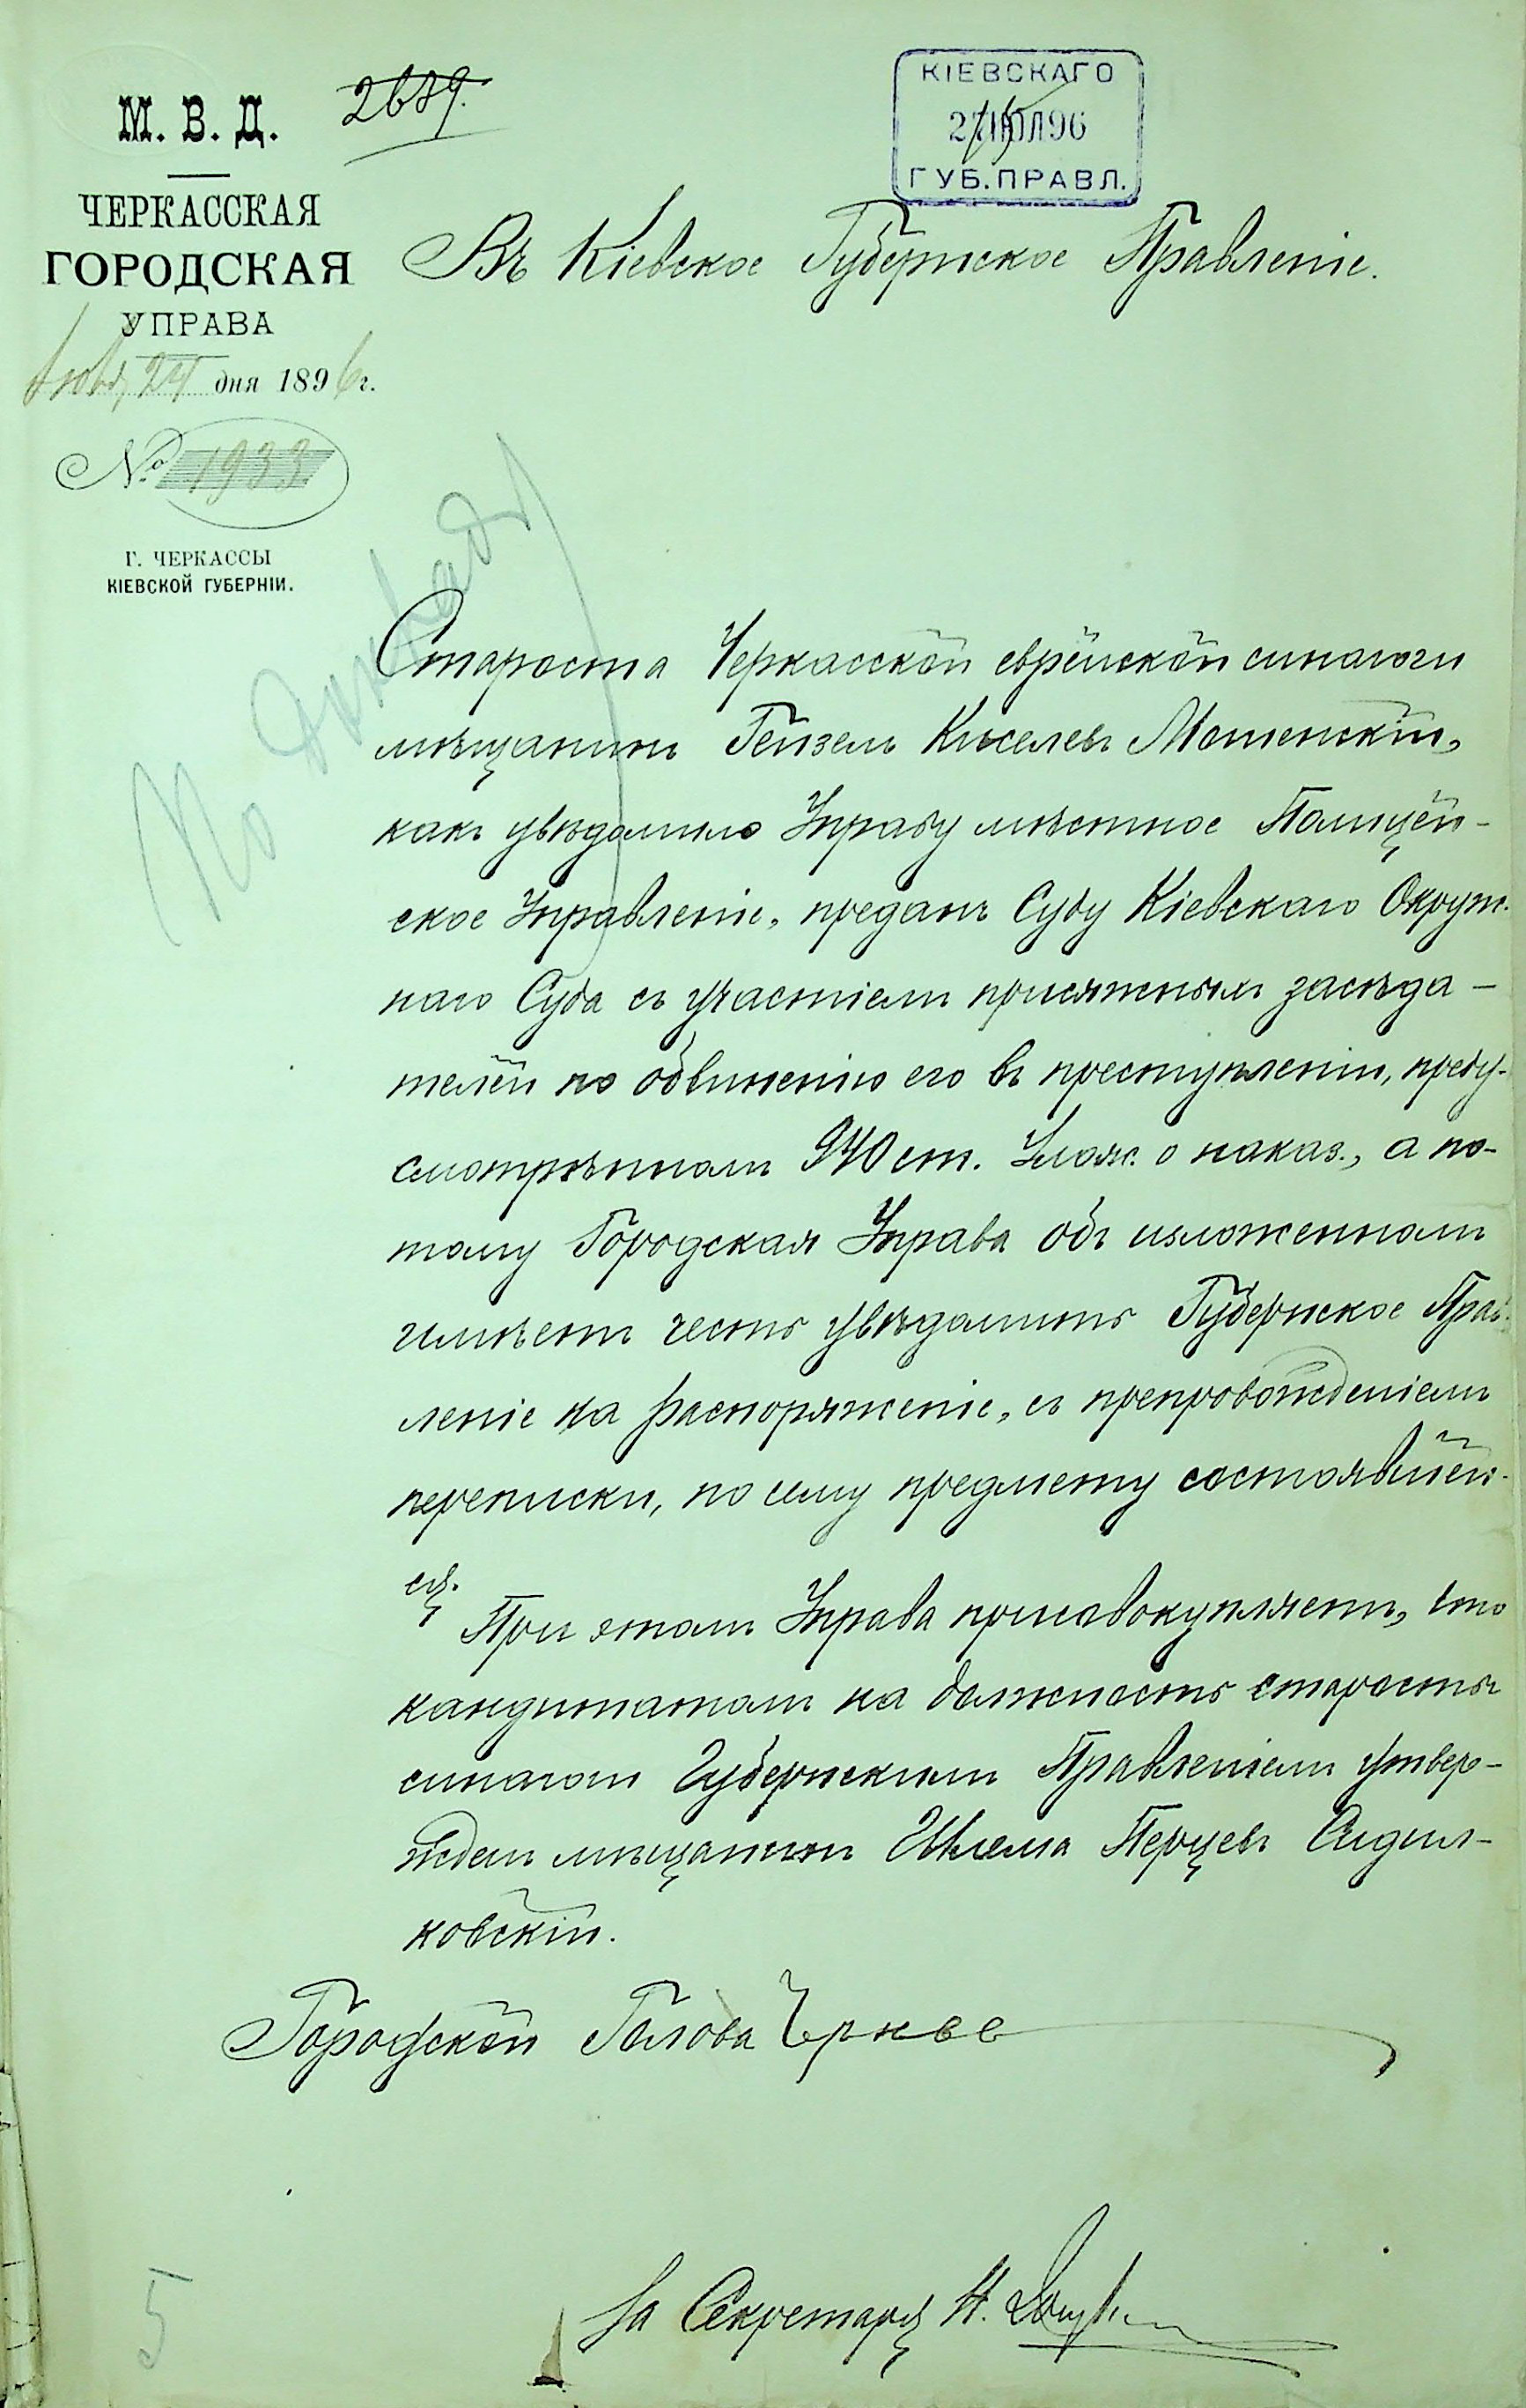 М. В. Д.
2689.
КІЕВСКАГО
27 ІЮЛ 96
ГУБ. ПРАВЛ.
ЧЕРКАССКАЯ
ГОРОДСКАЯ
УПРАВА
24 дня 1896 г.
№ 1933
Г. ЧЕРКАССЫ
КІЕВСКОЙ ГУБЕРНІИ.
Въ Кіевское Губернское Правленіе.
По докладу
Староста Черкасской еврейской синагоги
мѣщанинъ Гейзель Киселевъ Мошенскій,
какъ увѣдомило Управу мѣстное Полицей-
ское Управленіе, преданъ Суду Кіевскаго Окруж-
наго Суда съ участіемъ присяжныхъ засѣда-
телей по обвиненію его въ преступленіи, преду-
смотрѣнномъ 940 ст. Улож. о наказ., а по-
тому Городская Управа объ изложенномъ
имѣетъ честь увѣдомить Губернское Прав-
леніе на распоряженіе, съ препровожденіемъ
переписки, по сему предмету состоявшей-
ся.
При этомъ Управа присовокупляетъ, что
кандитатомъ на должность старосты
синагоги Губернскимъ Правленіемъ утвер-
жденъ мѣщанинъ Шлема Перцевъ Сидил-
ковскій.
Городской Голова
За Секретаря Н.
5